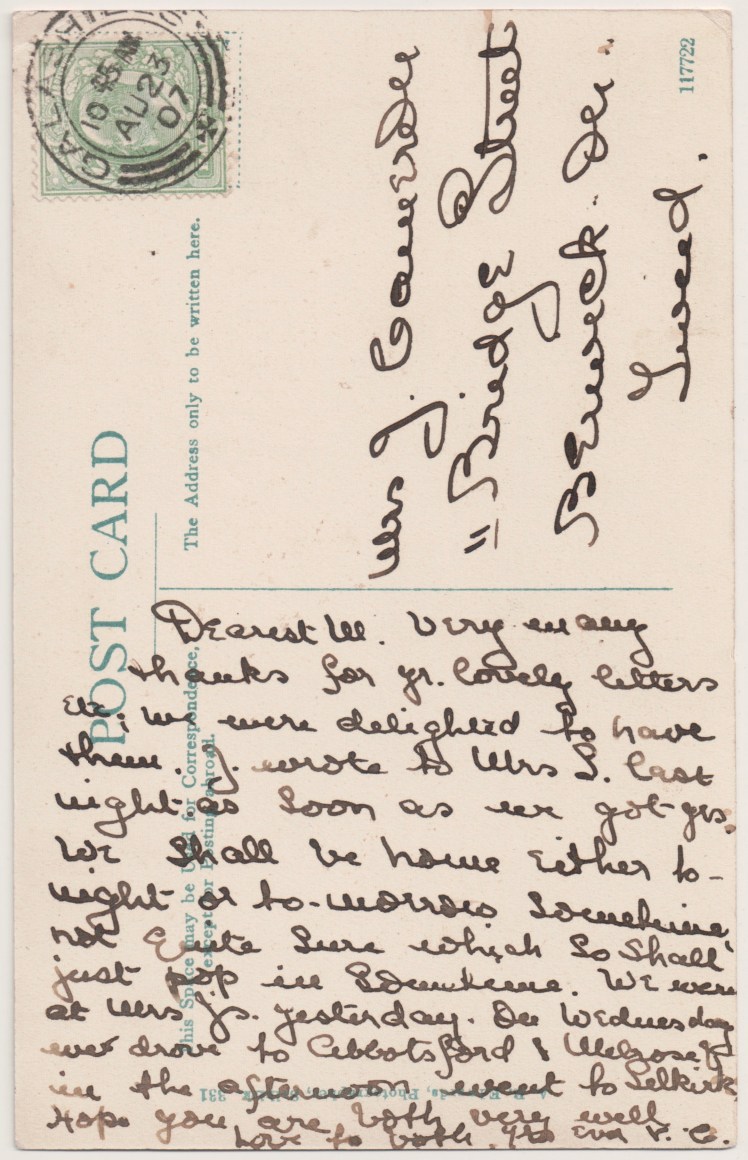 GALASHIELS
10 45 AM
AU 23
07
POST CARD
The Address only to be written here.
This Space may be Used for Correspondence,
except for Posting abroad.
117722
Mrs J. Caverhill
11 Bridge Street
Berwick. On.
Tweed.
Dearest M. Very many
thanks for yr. lovely letters
etc; we were delighted to have
them. J. wrote to Mrs S. last
night as soon as we got yrs.
We shall be home either to-
night or to-morrow sometime,
not quite sure which so shall
just pop in sometime. We were
at Mrs J's. yesterday. On Wednesday
we drove to Abbotsford & Melrose &
in the afternoon went to Selkirk
Hope you are both very well
Love to both. Yrs Eva
Edwards, Photographer, Selkirk 331